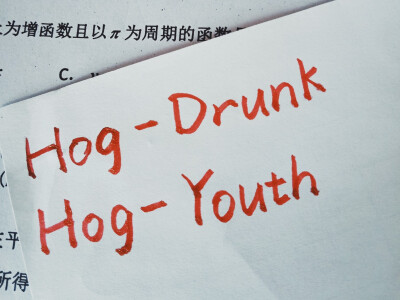 为增函数且以π为周期的函数
C.
Hog-Drunk
Hog-Youth
在平
所得